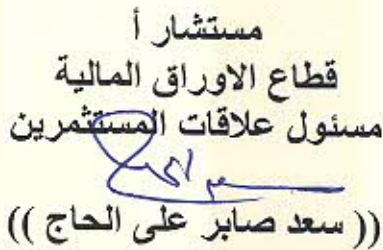 مستشار أ
قطاع الاوراق المالية
مسئول علاقات المستثمرين
(( سعد صابر على الحاج ))